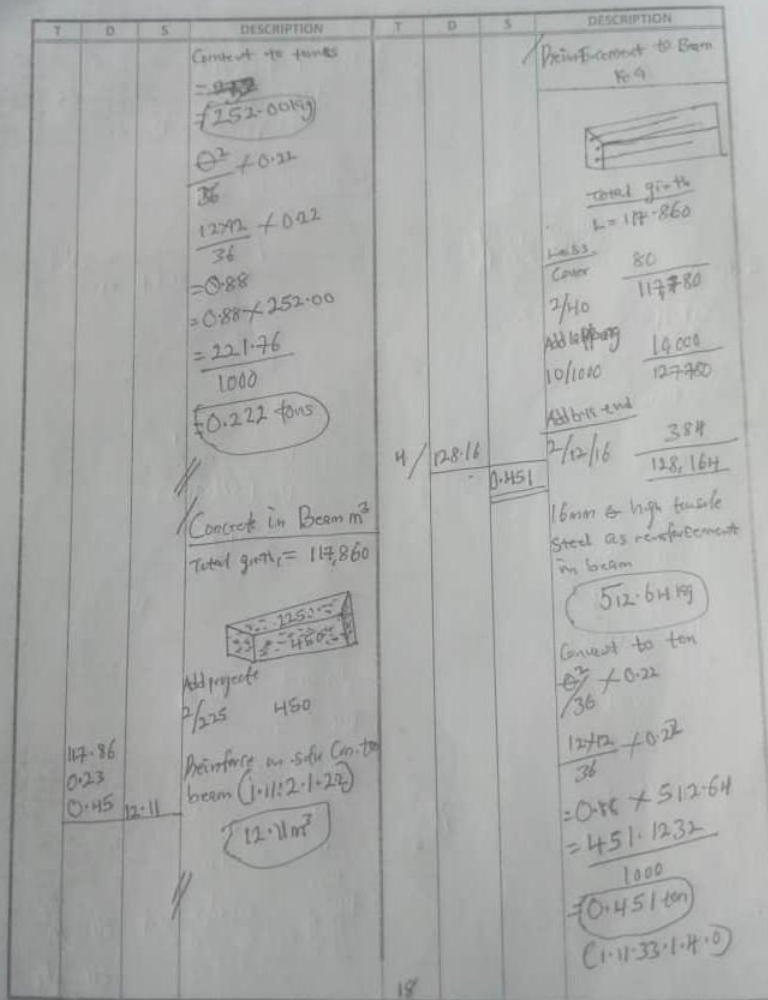 T D S DESCRIPTION
Convert to tonnes
=252.00kg
θ²/36 × 0.22
12×12/36 × 0.22
=0.88
=0.88 × 252.00
=221.76
1000
=0.222 tons
Concrete in Beam m³
Total girth = 117,860
225
450
Add projecte
2/225 450
117.86
0.23
0.45 12.11
Reinforce in-situ Con. to
beam (1:11:2.1.22)
12.11m³
T D S DESCRIPTION
Reinforcement to Beam
Total girth
L = 117.860
Less
Cover 80
2/40 117,780
Add lapping 10000
10/1000 127780
Add bris end
2/12/16 384
128,164
4/ 128.16
0.451
16mm θ high tensile
Steel as reinforcement
in beam
512.64kg
Convert to ton
θ²/36 × 0.22
12×12/36 × 0.22
=0.88 × 512.64
=451.1232
1000
=0.451 ton
(1.11.33.1.4.0)
18